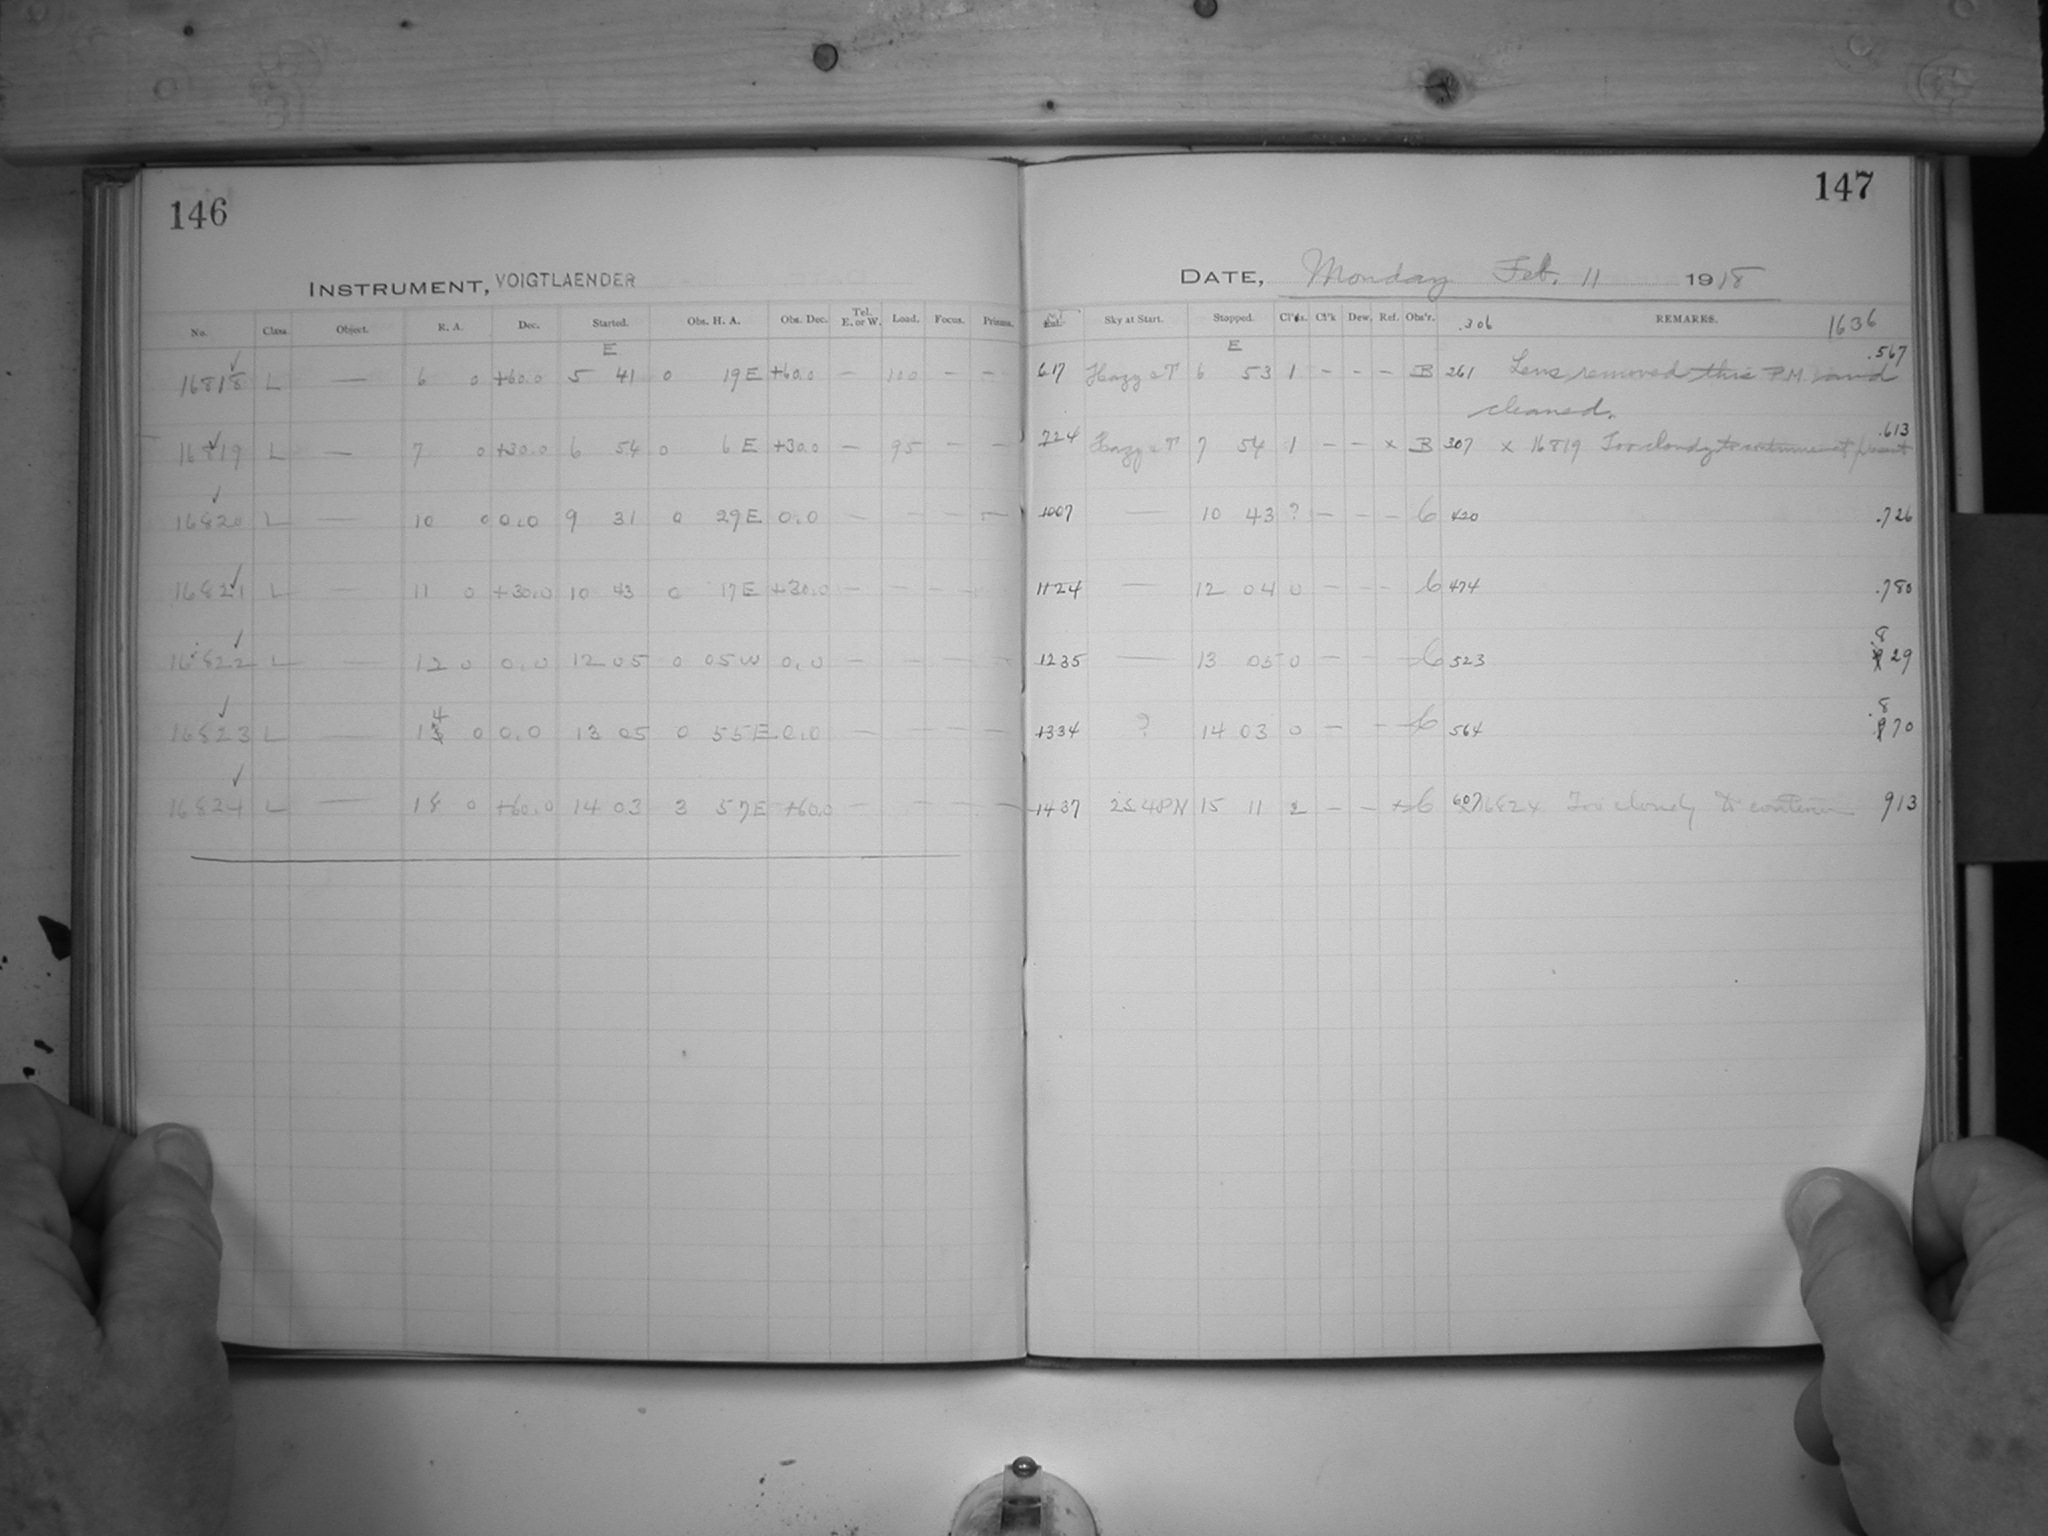 146
147
INSTRUMENT, VOIGTLAENDER
DATE, Monday Feb. 11 1918
No. Class. Object. R. A. Dec. Started. Obs. H. A. Obs. Dec. Tel. E. or W. Load. Focus. Prisms.
Sky at Start. Stopped. Cl'ds. Cl'k Dew. Ref. Obs'r. .306 REMARKS. 1636
E E
16818 L — 6 0 +60.0 5 41 0 19 E +60.0 — 100 — — 617 Hazy 6 53 1 - - - B 261 Lens removed this P.M. and .567
cleaned.
16819 L — 7 0 +30.0 6 54 0 6 E +30.0 — 95 — — 724 Hazy 7 54 1 - - x B 307 x 16819 Too cloudy to continue at present .613
16820 L — 10 0 0.0 9 31 0 29 E 0.0 — — — — 1007 — 10 43 ? - - - 6 420 .726
16821 L — 11 0 +30.0 10 43 0 17 E +30.0 — — — — 1124 — 12 04 0 - - - 6 474 .780
16822 L — 12 0 0.0 12 05 0 05 W 0.0 — — — — 1235 — 13 05 0 - - - 6 523 .829
16823 L — 14 0 0.0 13 05 0 55 E 0.0 — — — — 1334 ? 14 03 0 - - - 6 564 .870
16824 L — 18 0 +60.0 14 03 3 57 E +60.0 — — — — 1437 2S.4PN 15 11 2 - - x 6 607 16824 Too cloudy to continue 913